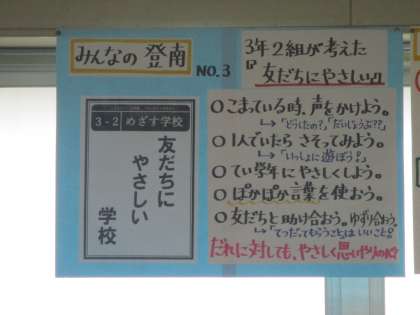 みんなの 登南
NO.3
3年2組が考えた
『友だちにやさしい』
3-2 めざす学校
友だちに
やさしい
学校
○こまっている時、声をかけよう。
↳「どうしたの?」「だいじょうぶ??」
○1人でいたら さそってみよう。
↳「いっしょに遊ぼう!」
○てい学年にやさしくしよう。
○ぽかぽか言葉を使おう。
○友だちと助け合おう。ゆずり合おう。
↳「てつだってもらうことはいいこと!」
だれに対しても、やさしく思いやりの心